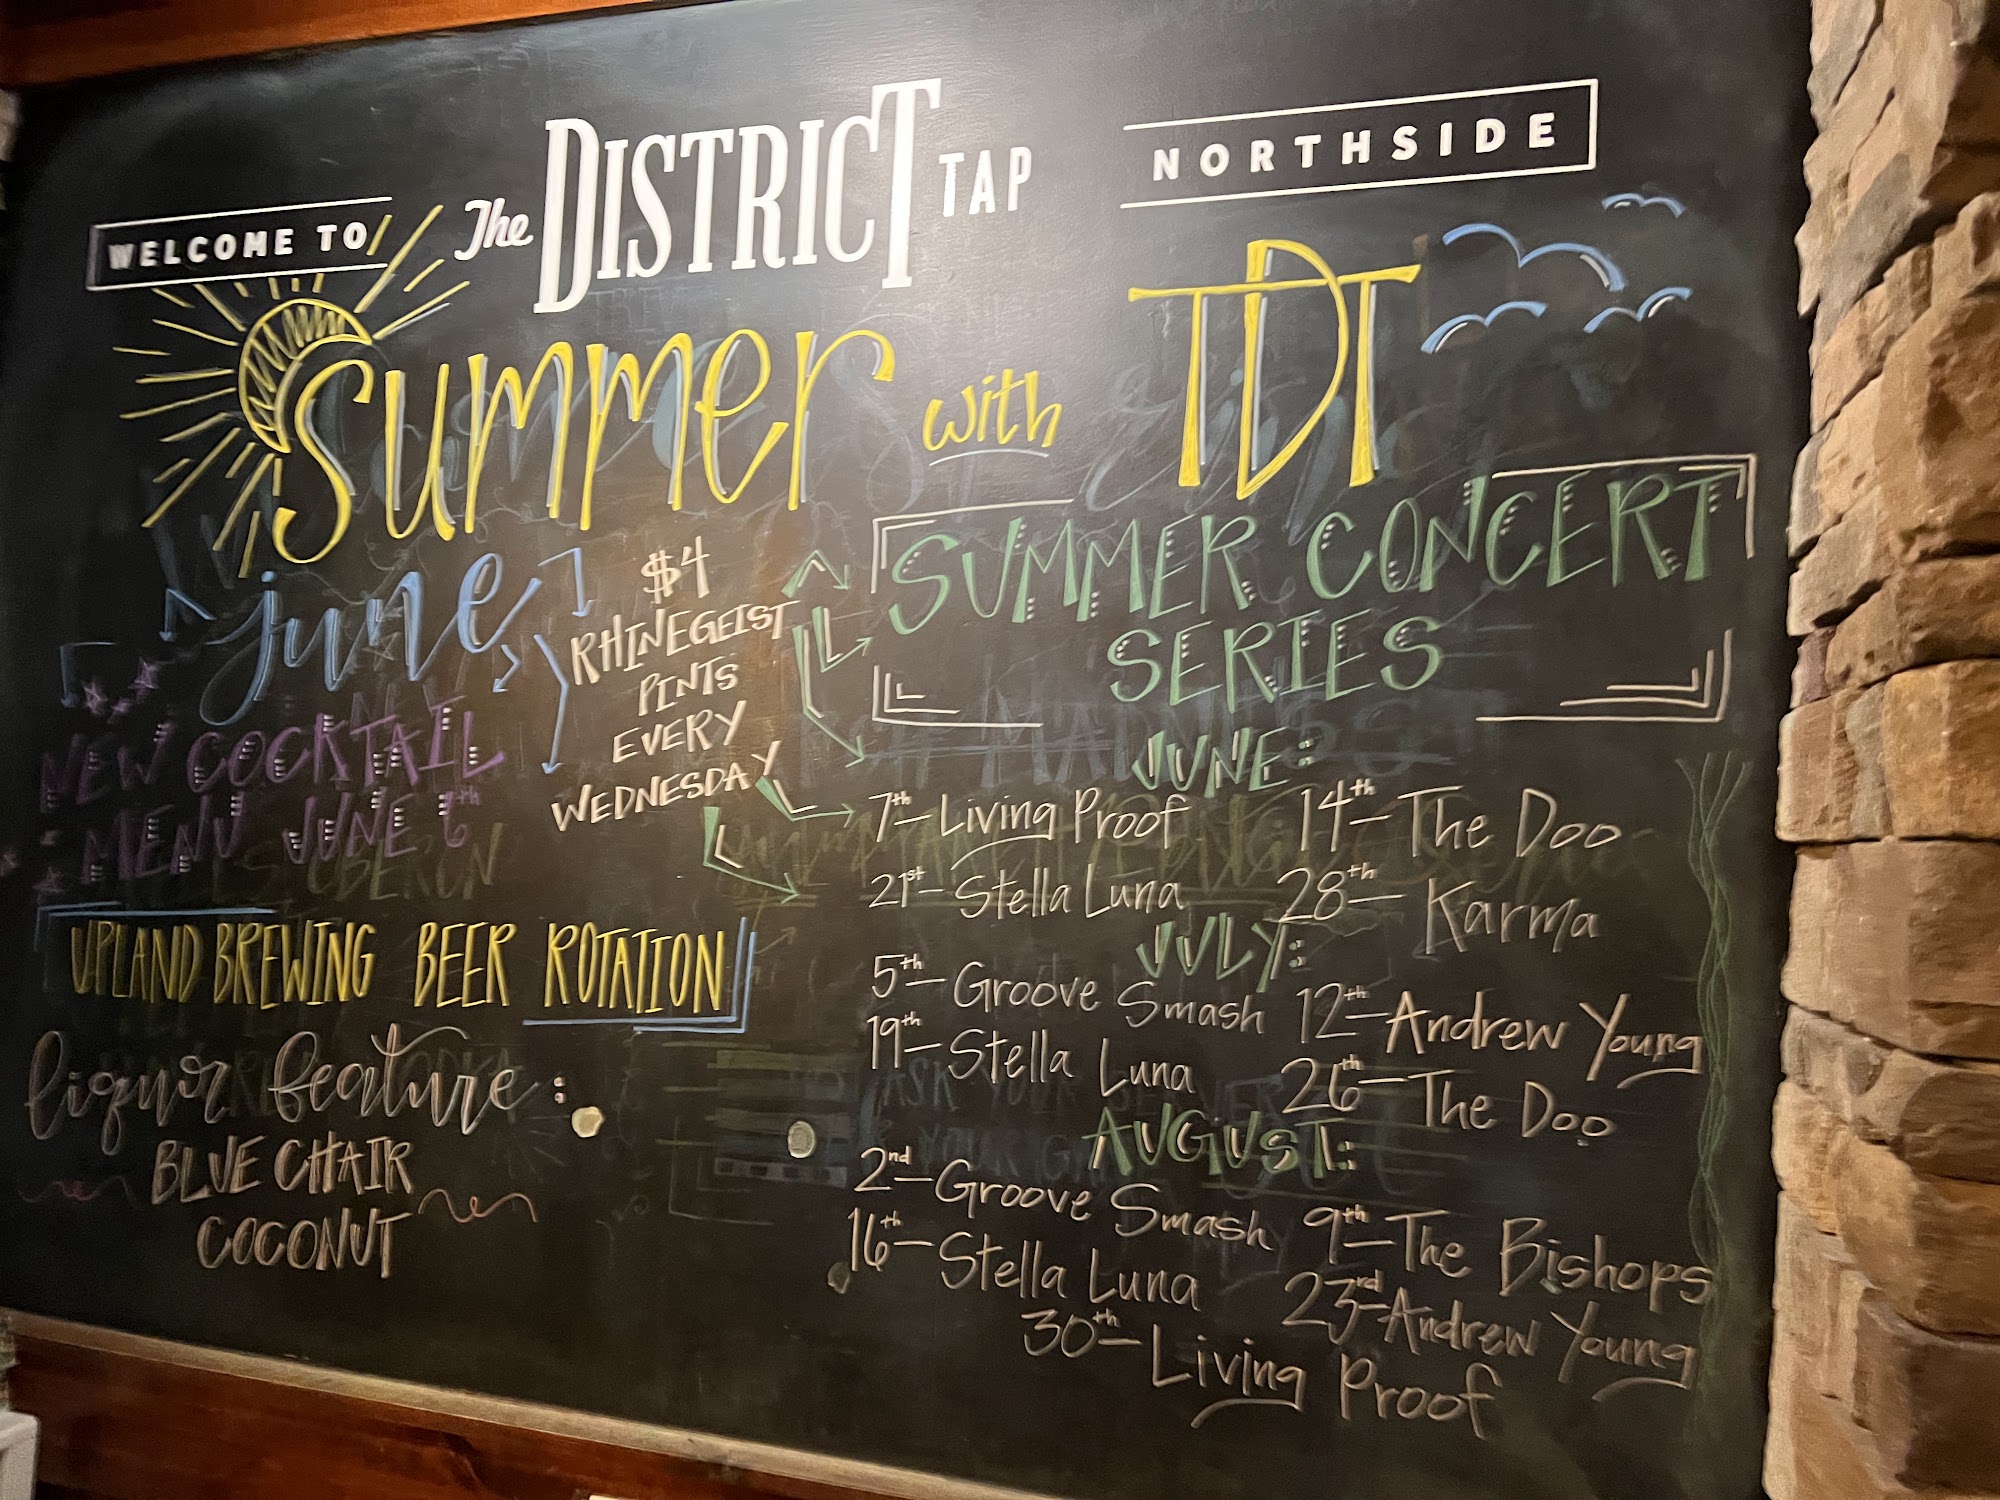 WELCOME TO The DISTRICT TAP NORTHSIDE
Summer with TDT
june
NEW COCKTAIL
MENU JUNE 6th
$4
RHINEGEIST
PINTS
EVERY
WEDNESDAY
UPLAND BREWING BEER ROTATION
liquor feature:
BLUE CHAIR
COCONUT
SUMMER CONCERT
SERIES
JUNE:
7th - Living Proof 14th - The Doo
21st - Stella Luna 28th - Karma
JULY:
5th - Groove Smash 12th - Andrew Young
19th - Stella Luna 26th - The Doo
AUGUST:
2nd - Groove Smash 9th - The Bishops
16th - Stella Luna 23rd - Andrew Young
30th - Living Proof